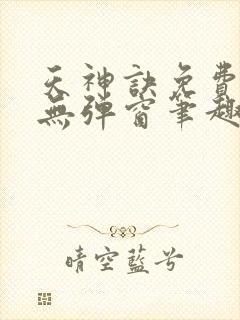 天神訣免費
無彈窗筆趣
晴空藍兮